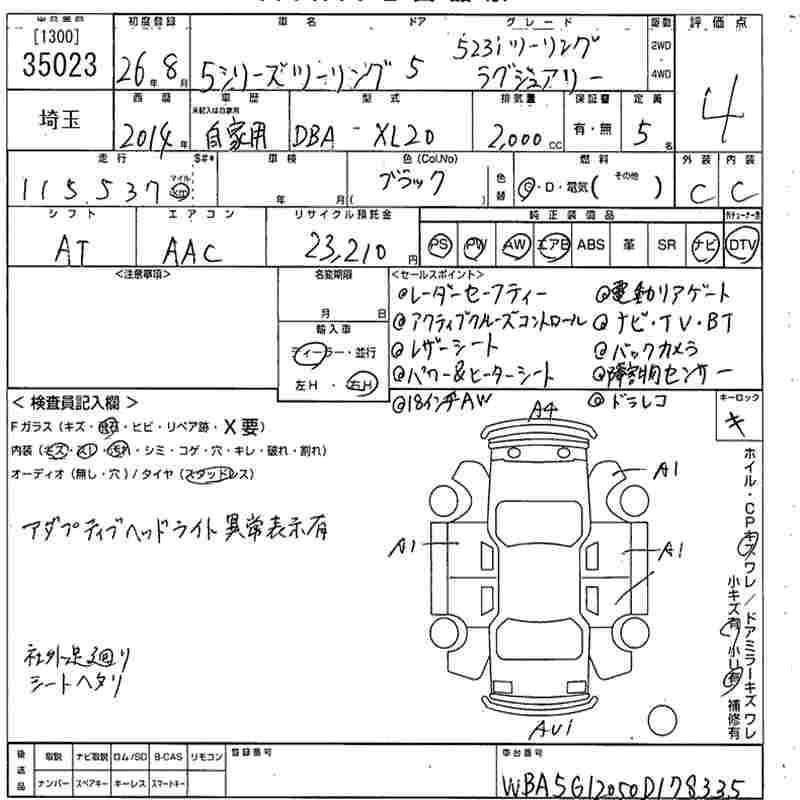 [1300]
35023
初度登録
26年 8月
車名
5シリーズツーリング
ドア
5
グレード
523iツーリング
ラグジュアリー
駆動
2WD
4WD
評価点
4
埼玉
西暦
2014年
車歴
未記入は自家用
自家用
型式
DBA - XL20
排気量
2,000CC
保証書
有・無
定員
5名
走行
115,537
マイル
km
S#*
車検
年 月
色(Col,No)
ブラック
( )
色替
燃料
G・D・電気( その他 )
外装
C
内装
C
シフト
AT
エアコン
AAC
リサイクル預託金
23,210円
純正装備品
PS PW AW エアB ABS 革 SR ナビ DTV
<注意事項>
名変期限
月 日
輸入車
ディーラー・並行
左H ・ 右H
<セールスポイント>
◎レーダーセーフティー ◎電動リアゲート
◎アクティブクルーズコントロール ◎ナビ・TV・BT
◎レザーシート ◎バックカメラ
◎パワー&ヒーターシート ◎障害物センサー
◎18インチAW ◎ドラレコ
キーロック
キ
<検査員記入欄>
Fガラス(キズ・飛石・ヒビ・リペア跡・X要)
内装(キズ・スレ・汚れ・シミ・コゲ・穴・キレ・破れ・割れ)
オーディオ(無し・穴)/タイヤ(スタッドレス)
アダプティブヘッドライト異常表示有
社外足廻り
シートヘタリ
A4
A1
A1
A1
AU1
ホイル・CPキズワレ/ドアミラーキズワレ
小キズ有 小U有 補修有
後送品
取説 ナビ取説 ロム/SD B-CAS リモコン
ナンバー スペアキー キーレス スマートキー
登録番号
車台番号
WBA5G12050D178335